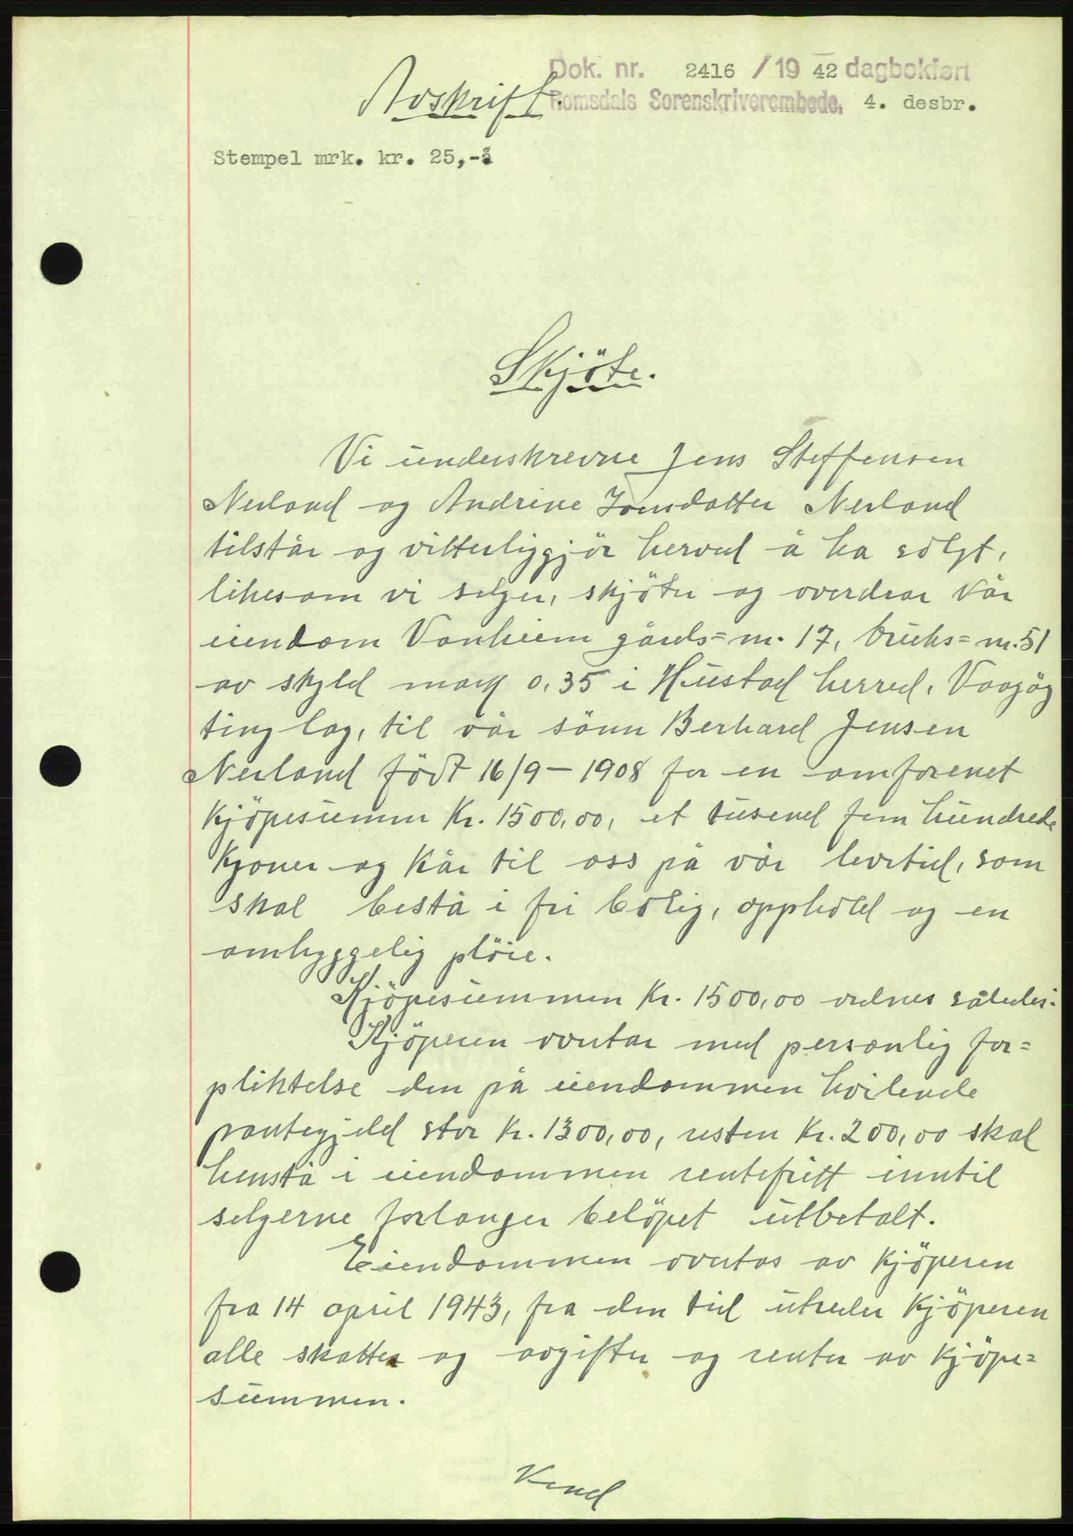 Dok. nr. 2416 / 19 42 dagbokført
Avskrift.
Romsdals Sorenskriverembede, 4. desbr.
Stempel mrk. kr. 25,-
Skjöte.
Vi underskrevne Jens Steffensen
Nerland og Andrine Jonsdatter Nerland
tilstår og vitterliggjör herved å ha solgt,
likesom vi selger, skjöter og overdrar vår
eiendom Vonheim gårds=nr. 17, bruks=nr. 51
av skyld mark 0,35 i Hustad herred, Vaagöy
tinglag, til vår sönn Berhard Jensen
Nerland födt 16/9 - 1908 for en omforenet
kjöpesumm Kr. 1500,00, et tusend fem hundrede
kroner og kår til oss på vår levetid, som
skal bestå i fri bolig, opphold og en
omhyggelig pleie.
Kjöpesummen Kr. 1500,00 ordnes således:
Kjöperen overtar med personlig for=
pliktelse den på eiendommen hvilende
pantegjeld stor Kr. 1300,00, resten Kr. 200,00 skal
henstå i eiendommen rentefritt inntil
selgerne forlanger belöpet utbetalt.
Eiendommen overtas av kjöperen
fra 14 april 1943, fra den tid utreder kjöperen
alle skatter og avgifter og renter av kjöpe=
summen.